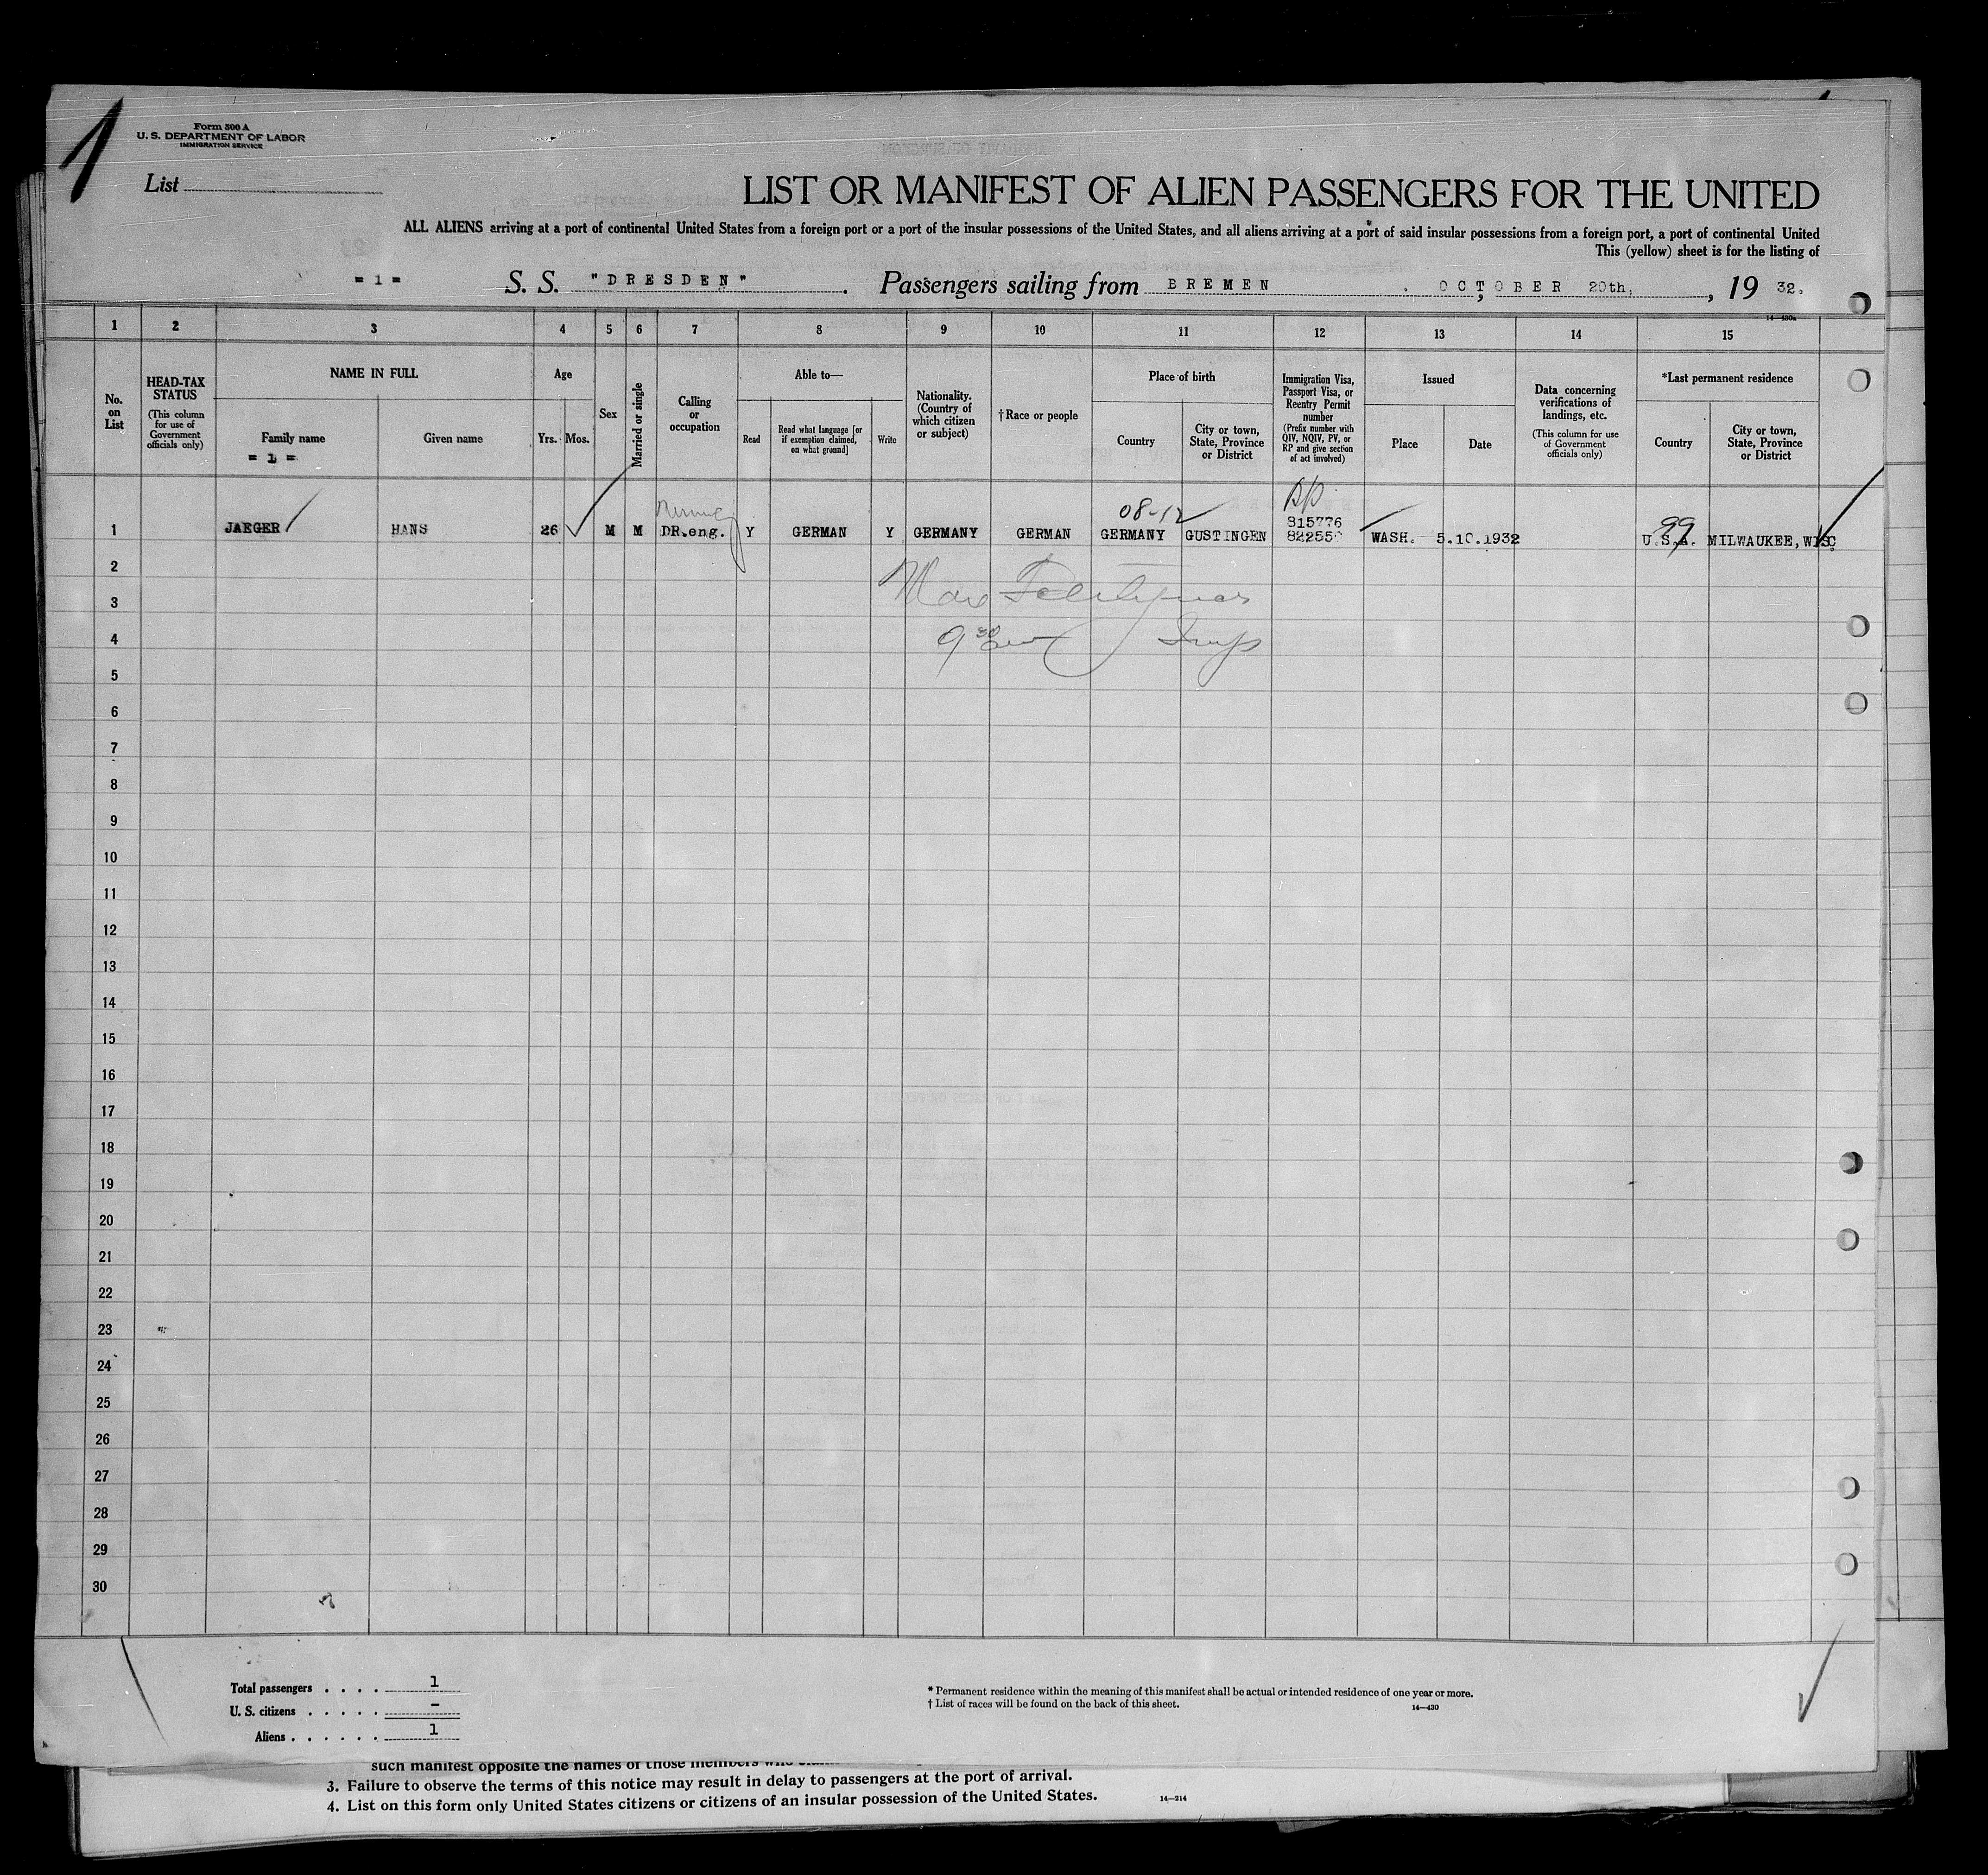 1
Form 500 A
U. S. DEPARTMENT OF LABOR
IMMIGRATION SERVICE
List
LIST OR MANIFEST OF ALIEN PASSENGERS FOR THE UNITED
ALL ALIENS arriving at a port of continental United States from a foreign port or a port of the insular possessions of the United States, and all aliens arriving at a port of said insular possessions from a foreign port, a port of continental United
This (yellow) sheet is for the listing of
= 1 = S. S. "DRESDEN". Passengers sailing from BREMEN. OCTOBER 20th, , 19 32.
14—430a
1 2 3 4 5 6 7 8 9 10 11 12 13 14 15
No. on List
HEAD-TAX STATUS
(This column for use of Government officials only)
NAME IN FULL
Family name
= 1 =
Given name
Age
Yrs. Mos.
Sex
Married or single
Calling or occupation
Able to—
Read
Read what language [or if exemption claimed, on what ground]
Write
Nationality. (Country of which citizen or subject)
†Race or people
Place of birth
Country
City or town, State, Province or District
Immigration Visa, Passport Visa, or Reentry Permit number
(Prefix number with QIV, NQIV, PV, or RP and give section of act involved)
Issued
Place
Date
Data concerning verifications of landings, etc.
(This column for use of Government officials only)
*Last permanent residence
Country
City or town, State, Province or District
08-12
RP
815776
99
1 JAEGER HANS 26 M M DR.eng. Y GERMAN Y GERMANY GERMAN GERMANY GUSTINGEN WASH. 5.10.1932 U.S.A. MILWAUKEE, WISC
2
3
4
9 30
5
6
7
8
9
10
11
12
13
14
15
16
17
18
19
20
21
22
23
24
25
26
27
28
29
30
Total passengers . . . . 1
U. S. citizens . . . . . –
Aliens . . . . . . 1
* Permanent residence within the meaning of this manifest shall be actual or intended residence of one year or more.
† List of races will be found on the back of this sheet.
14—430
such manifest opposite the names of those members
3. Failure to observe the terms of this notice may result in delay to passengers at the port of arrival.
4. List on this form only United States citizens or citizens of an insular possession of the United States.
14—214